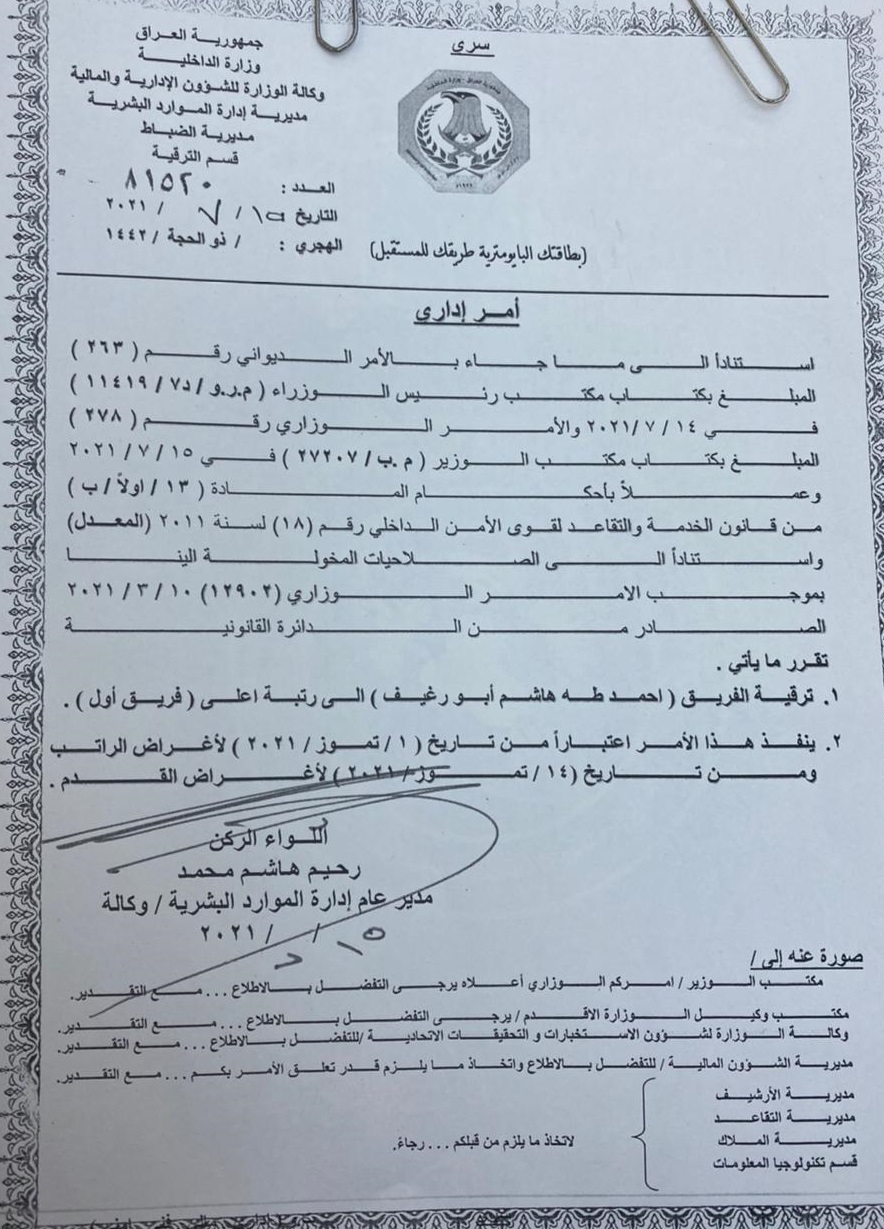 سري
جمهورية العراق
وزارة الداخلية
وكالة الوزارة للشؤون الإدارية والمالية
مديرية إدارة الموارد البشرية
مديرية الضباط
قسم الترقية
العدد : ٨١٥٢٠
التاريخ ١٥ / ٧ / ٢٠٢١
الهجري : / ذو الحجة / ١٤٤٢
(بطاقتك البايومترية طريقك للمستقبل)
أمر إداري
استنادأ الى ما جاء بالأمر الديواني رقم ( ٢٦٣ )
المبلغ بكتاب مكتب رئيس الوزراء ( م.ر.و / د٧ / ١١٤١٩ )
في ١٤ / ٧ /٢٠٢١ والأمر الوزاري رقم ( ٢٧٨ )
المبلغ بكتاب مكتب الوزير ( م .ب/ ٢٧٢٠٧ ) في ١٥ / ٧ / ٢٠٢١
وعملاً بأحكام المادة ( ١٣ / اولاً / ب )
من قانون الخدمة والتقاعد لقوى الأمن الداخلي رقم (١٨) لسنة ٢٠١١ (المعدل)
واستنادأ الى الصلاحيات المخولة الينا
بموجب الامر الوزاري (١٢٩٠٢) ١٠ / ٣ / ٢٠٢١
الصادر من الدائرة القانونية
تقرر ما يأتي .
١. ترقية الفريق ( احمد طه هاشم أبو رغيف ) الى رتبة اعلى ( فريق أول ) .
٢. ينفذ هذا الأمر اعتباراً من تاريخ ( ١ / تموز / ٢٠٢١ ) لأغراض الراتب
ومن تاريخ ( ١٤ / تموز / ٢٠٢١ ) لأغراض القدم .
اللواء الركن
رحيم هاشم محمد
مدير عام إدارة الموارد البشرية / وكالة
١٥ / / ٢٠٢١
صورة عنه إلى /
مكتب الوزير / امركم الوزاري أعلاه يرجى التفضل بالاطلاع ... مع التقدير.
مكتب وكيل الوزارة الاقدم / يرجى التفضل بالاطلاع ... مع التقدير.
وكالة الوزارة لشؤون الاستخبارات و التحقيقات الاتحادية /للتفضل بالاطلاع ... مع التقدير.
مديرية الشؤون المالية / للتفضل بالاطلاع واتخاذ ما يلزم قدر تعلق الأمر بكم ... مع التقدير.
مديرية الأرشيف
مديرية التقاعد
مديرية الملاك
قسم تكنولوجيا المعلومات
لاتخاذ ما يلزم من قبلكم ... رجاءً.